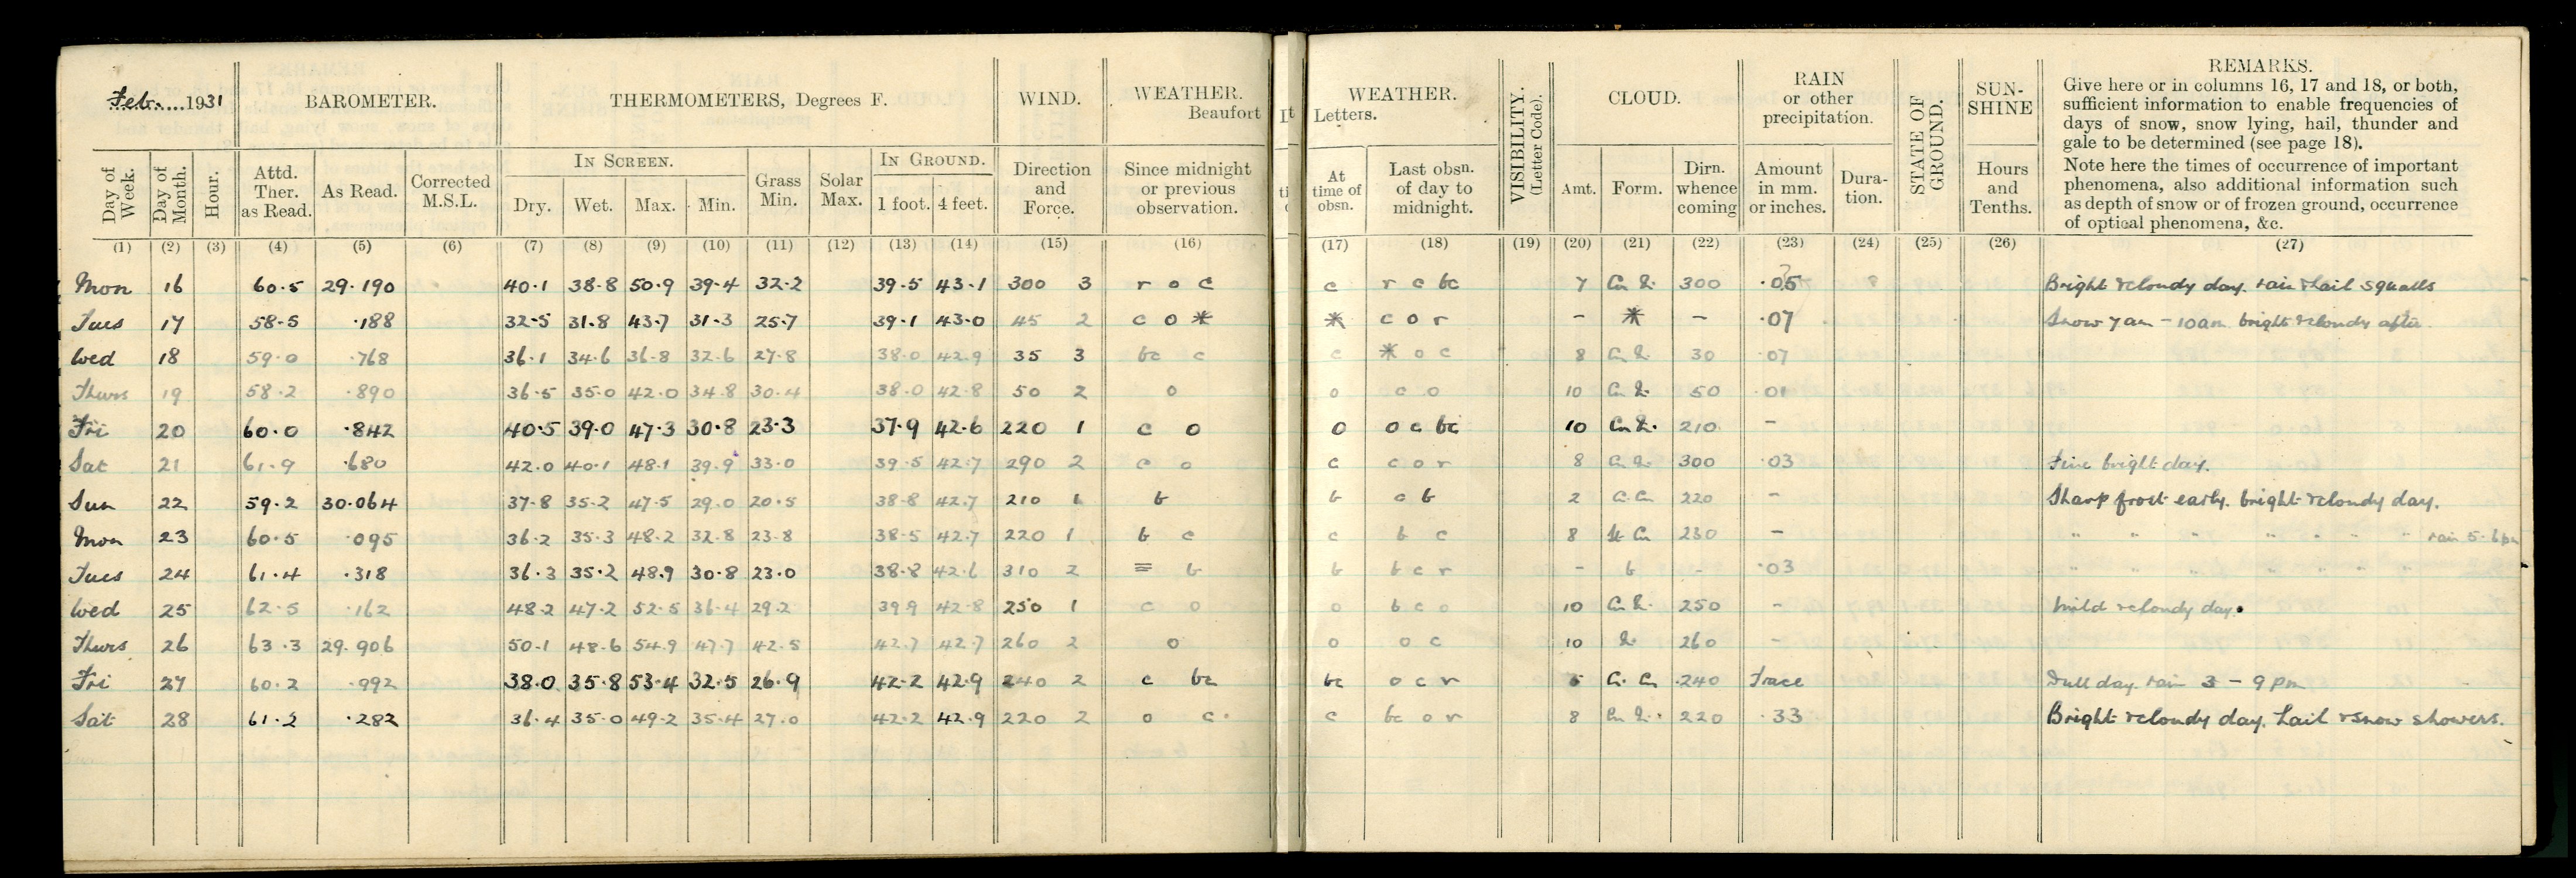 Feb. 1931
BAROMETER.
THERMOMETERS, Degrees F.
WIND.
WEATHER.
Beaufort
It
WEATHER.
Letters.
VISIBILITY.
(Letter Code).
CLOUD.
RAIN
or other
precipitation.
STATE OF
GROUND.
SUN-
SHINE
REMARKS.
Give here or in columns 16, 17 and 18, or both,
sufficient information to enable frequencies of
days of snow, snow lying, hail, thunder and
gale to be determined (see page 18).
Note here the times of occurrence of important
phenomena, also additional information such
as depth of snow or of frozen ground, occurrence
of optical phenomena, &c.
Day of
Week.
Day of
Month.
Hour.
Attd.
Ther.
as Read.
As Read.
Corrected
M.S.L.
IN SCREEN.
Dry. Wet. Max. Min.
Grass
Min.
Solar
Max.
IN GROUND.
1 foot. 4 feet.
Direction
and
Force.
Since midnight
or previous
observation.
At
time of
obsn.
Last obsn.
of day to
midnight.
Amt. Form.
Dirn.
whence
coming
Amount
in mm.
or inches.
Dura-
tion.
Hours
and
Tenths.
(1) (2) (3) (4) (5) (6) (7) (8) (9) (10) (11) (12) (13) (14) (15) (16) (17) (18) (19) (20) (21) (22) (23) (24) (25) (26) (27)
Mon 16 60.5 29.190 40.1 38.8 50.9 39.4 32.2 39.5 43.1 300 3 r o c c r c bc 7 Cu N. 300 .05 Bright & cloudy day. rain & hail squalls
Tues 17 58.5 .188 32.5 31.8 43.7 31.3 25.7 39.1 43.0 45 2 c o * * c o r - * - .07 Snow 7am - 10am bright & cloudy after
Wed 18 59.0 .768 36.1 34.6 36.8 32.6 27.8 38.0 42.9 35 3 bc c c * o c 8 Cu N. 30 .07
Thurs 19 58.2 .890 36.5 35.0 42.0 34.8 30.4 38.0 42.8 50 2 o o c o 10 Cu N. 50 .01
Fri 20 60.0 .842 40.5 39.0 47.3 30.8 23.3 37.9 42.6 220 1 c o o o c bc 10 Cu N. 210 -
Sat 21 61.9 .680 42.0 40.1 48.1 39.9 33.0 39.5 42.7 290 2 c o c c o r 8 Cu N. 300 .03 Fine bright day.
Sun 22 59.2 30.064 37.8 35.2 47.5 29.0 20.5 38.8 42.7 210 1 b b c b 2 C. Cu 220 - Sharp frost early. bright & cloudy day.
Mon 23 60.5 .095 36.2 35.3 48.2 32.8 23.8 38.5 42.7 220 1 b c c b c 8 St Cu 230 - " " " " " " " rain 5-6pm
Tues 24 61.4 .318 36.3 35.2 48.9 30.8 23.0 38.8 42.6 310 2 ≡ b b b c r - b - .03 " " " " " " "
Wed 25 62.5 .162 48.2 47.2 52.5 36.4 29.2 39.9 42.8 250 1 c o o b c o 10 Cu N. 250 - Mild & cloudy day.
Thurs 26 63.3 29.906 50.1 48.6 54.9 47.7 42.5 42.7 42.7 260 2 o o o c 10 N. 260 -
Fri 27 60.2 .992 38.0 35.8 53.4 32.5 26.9 42.2 42.9 240 2 c bc bc o c r 5 C. Cu 240 Trace Dull day. rain 3 - 9 pm
Sat 28 61.2 .282 36.4 35.0 49.2 35.4 27.0 42.2 42.9 220 2 o c. c bc o r 8 Cu N. 220 .33 Bright & cloudy day. hail & snow showers.